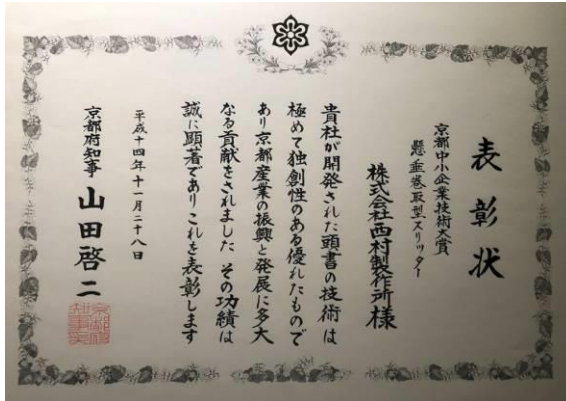 表彰状
京都中小企業技術大賞
懸垂巻取型スリッター
株式会社西村製作所様
貴社が開発された頭書の技術は
極めて独創性のある優れたもので
あり京都産業の振興と発展に多大
なる貢献をされました その功績は
誠に顕著でありこれを表彰します
平成十四年十一月二十八日
京都府知事 山田啓二
京都府知事之印